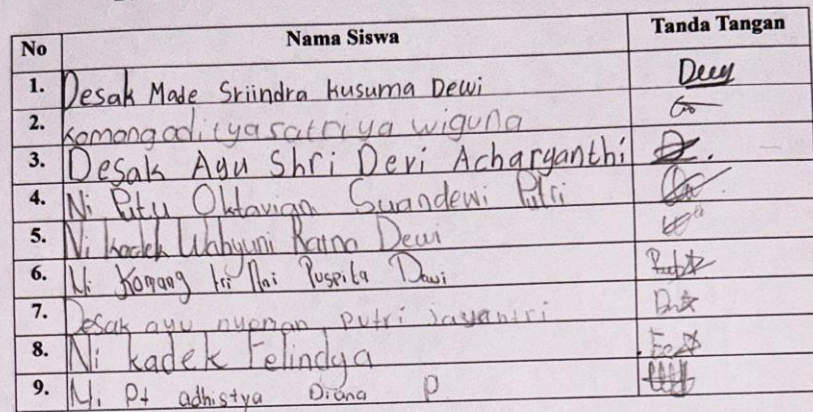 No Nama Siswa Tanda Tangan
1. Desak Made Sriindra kusuma Dewi Deey
2. Komang aditya satriya wiguna
3. Desak Ayu Shri Devi Acharyanthi
4. Ni Putu Oktavian Suandewi Putri
5. Ni kadek Wahyuni Ratna Dewi
6. Ni Komang tri Puspita Dewi
7. Desak ayu nyoman putri jayantri
8. Ni kadek Felindya
9. Ni Pt adhistya Diana P